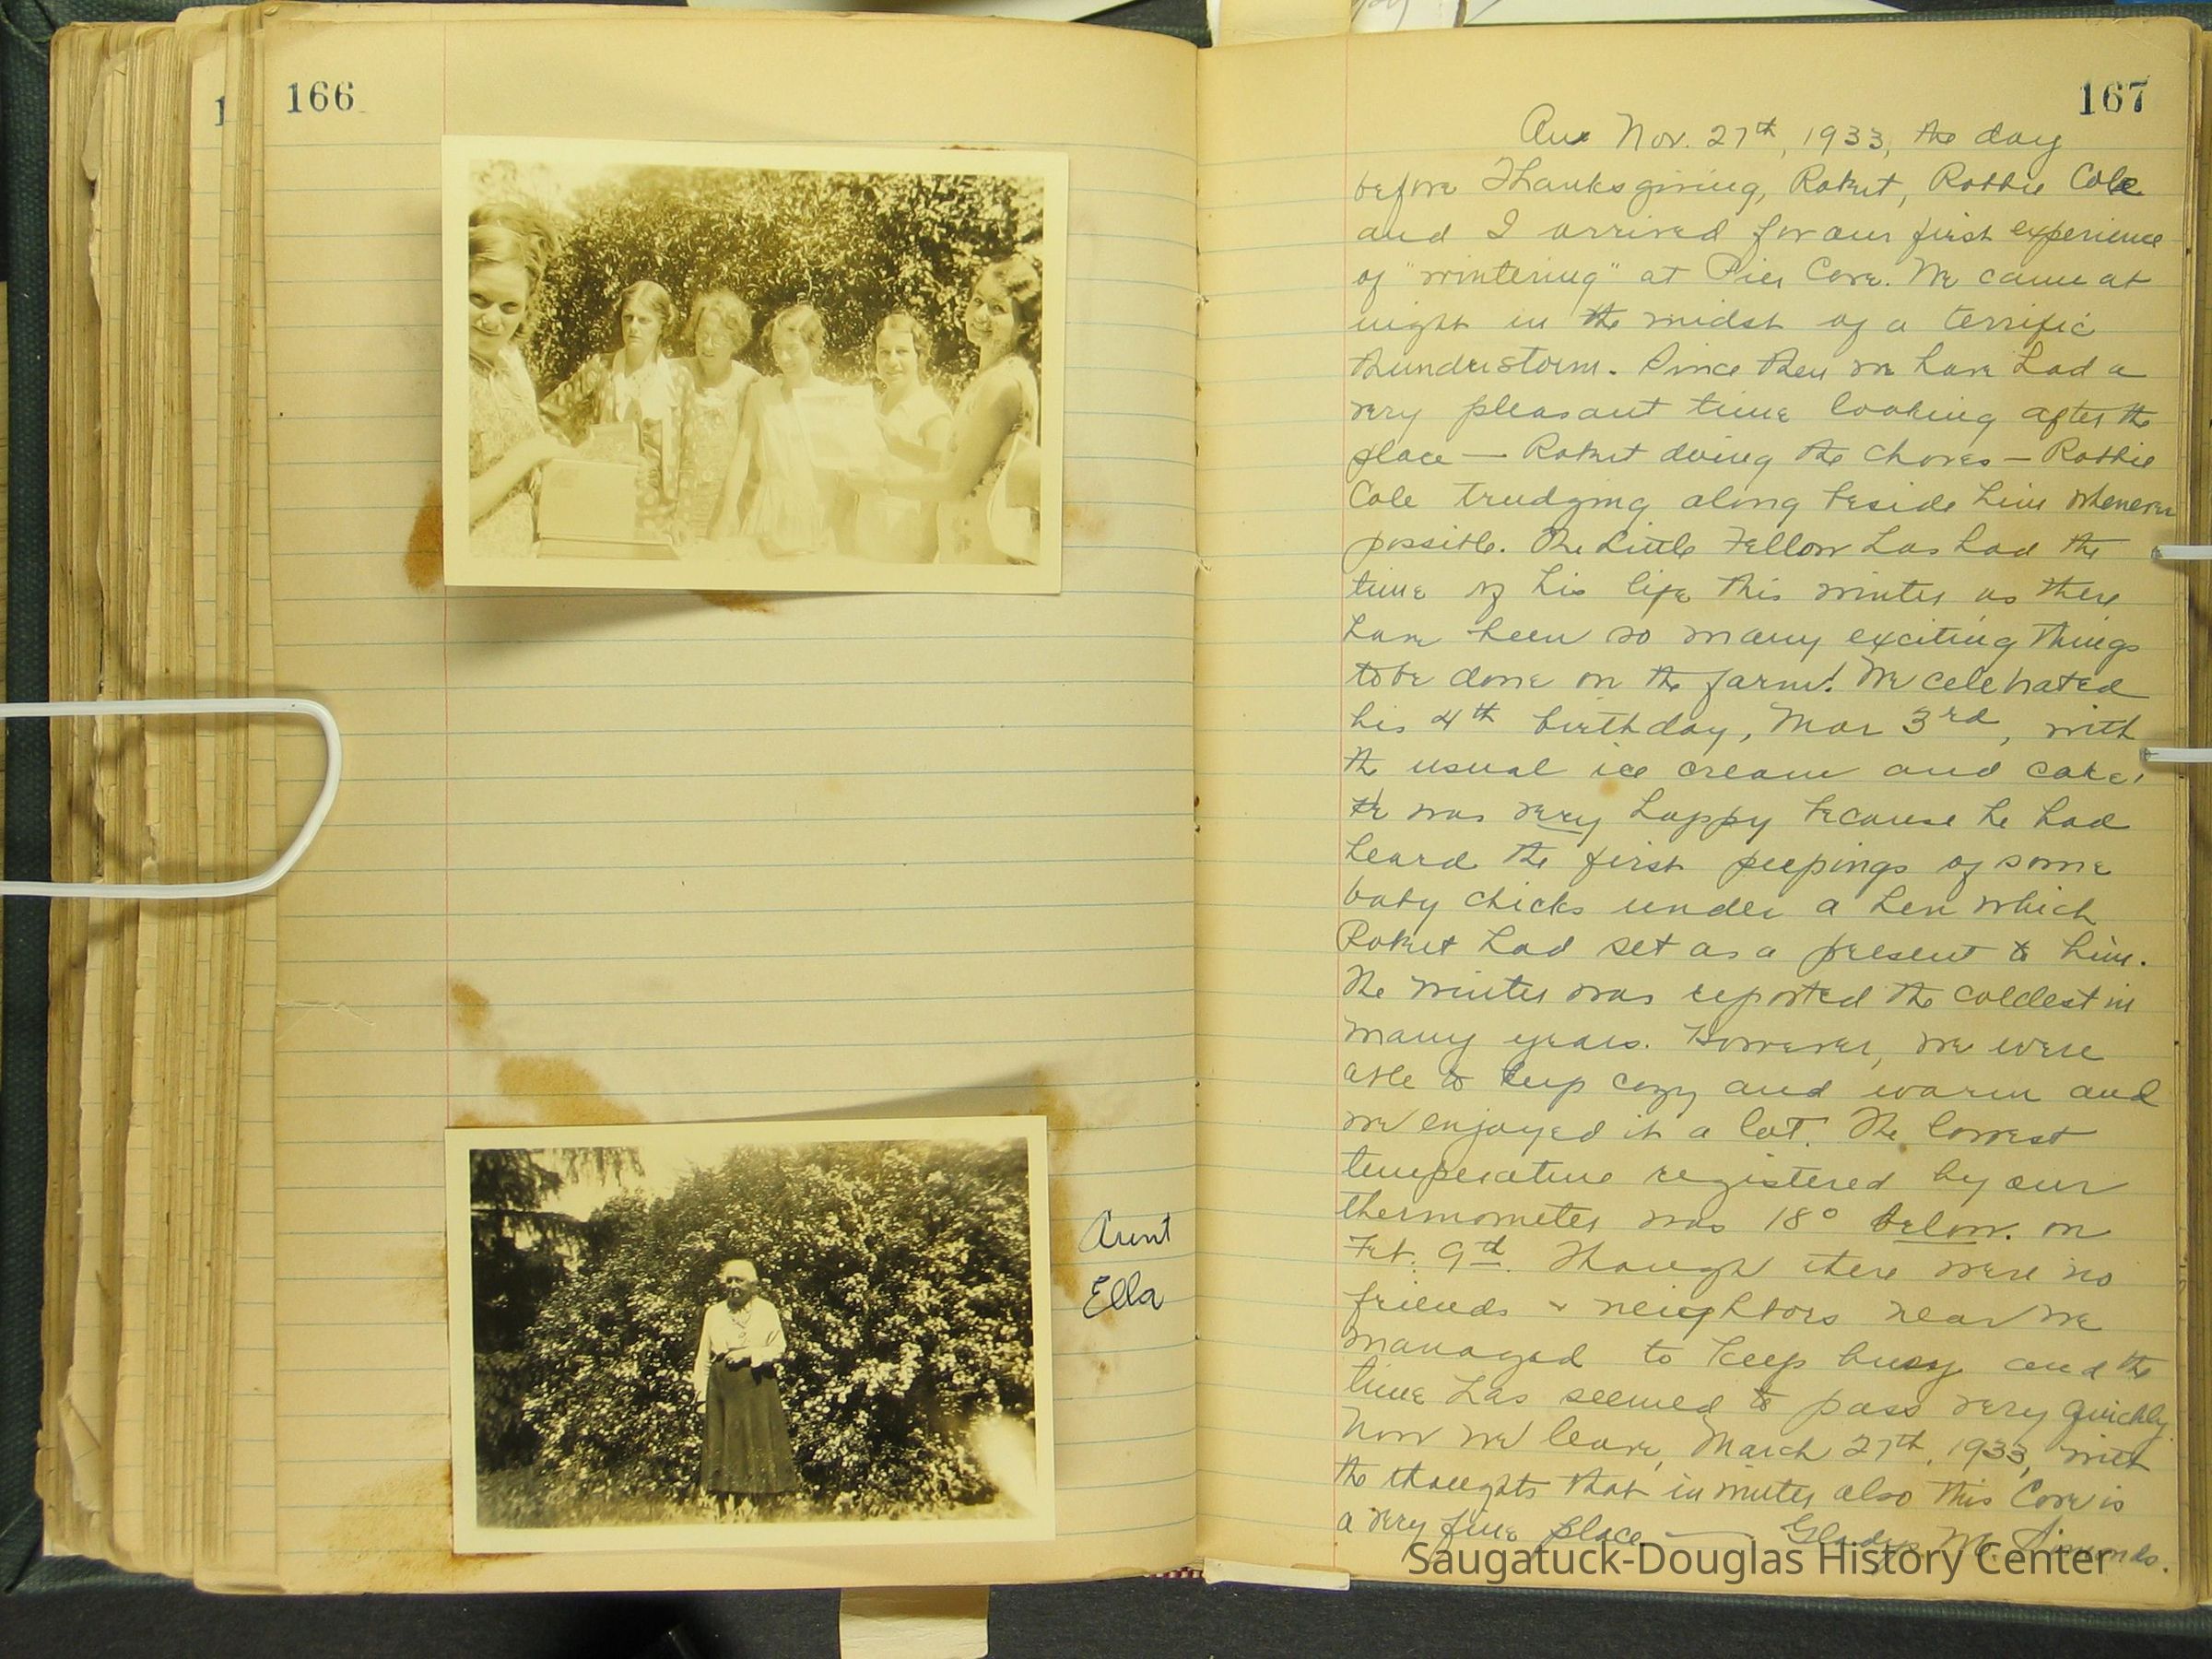 166
Aunt
Ella
167
Nov. 27th, 1933, the day
before Thanksgiving, Robert, Robbie Cole
and I arrived for our first experience
of "wintering" at Pier Cove. We came at
night in the midst of a terrific
thunderstorm. Since then we have had a
very pleasant time looking after the
place — Robert doing the chores — Robbie
Cole trudging along beside him whenever
possible. The Little Fellow has had the
time of his life this winter as there
have been so many exciting things
to be done on the farm! We celebrated
his 4th birthday, Mar 3rd, with
the usual ice cream and cake!
He was very happy because he had
heard the first peepings of some
baby chicks under a hen which
Robert had set as a present to him.
The winter was reported the coldest in
many years. However, we were
able to keep cozy and warm and
we enjoyed it a lot. The lowest
temperature registered by our
thermometer was 18° below. on
Feb. 9th. Though there were no
friends & neighbors near we
managed to keep busy and the
time has seemed to pass very quickly
Now we leave, March 27th, 1933, with
the thoughts that in winter also this Cove is
a very fine place — Gladys M. Simonds.
Saugatuck-Douglas History Center